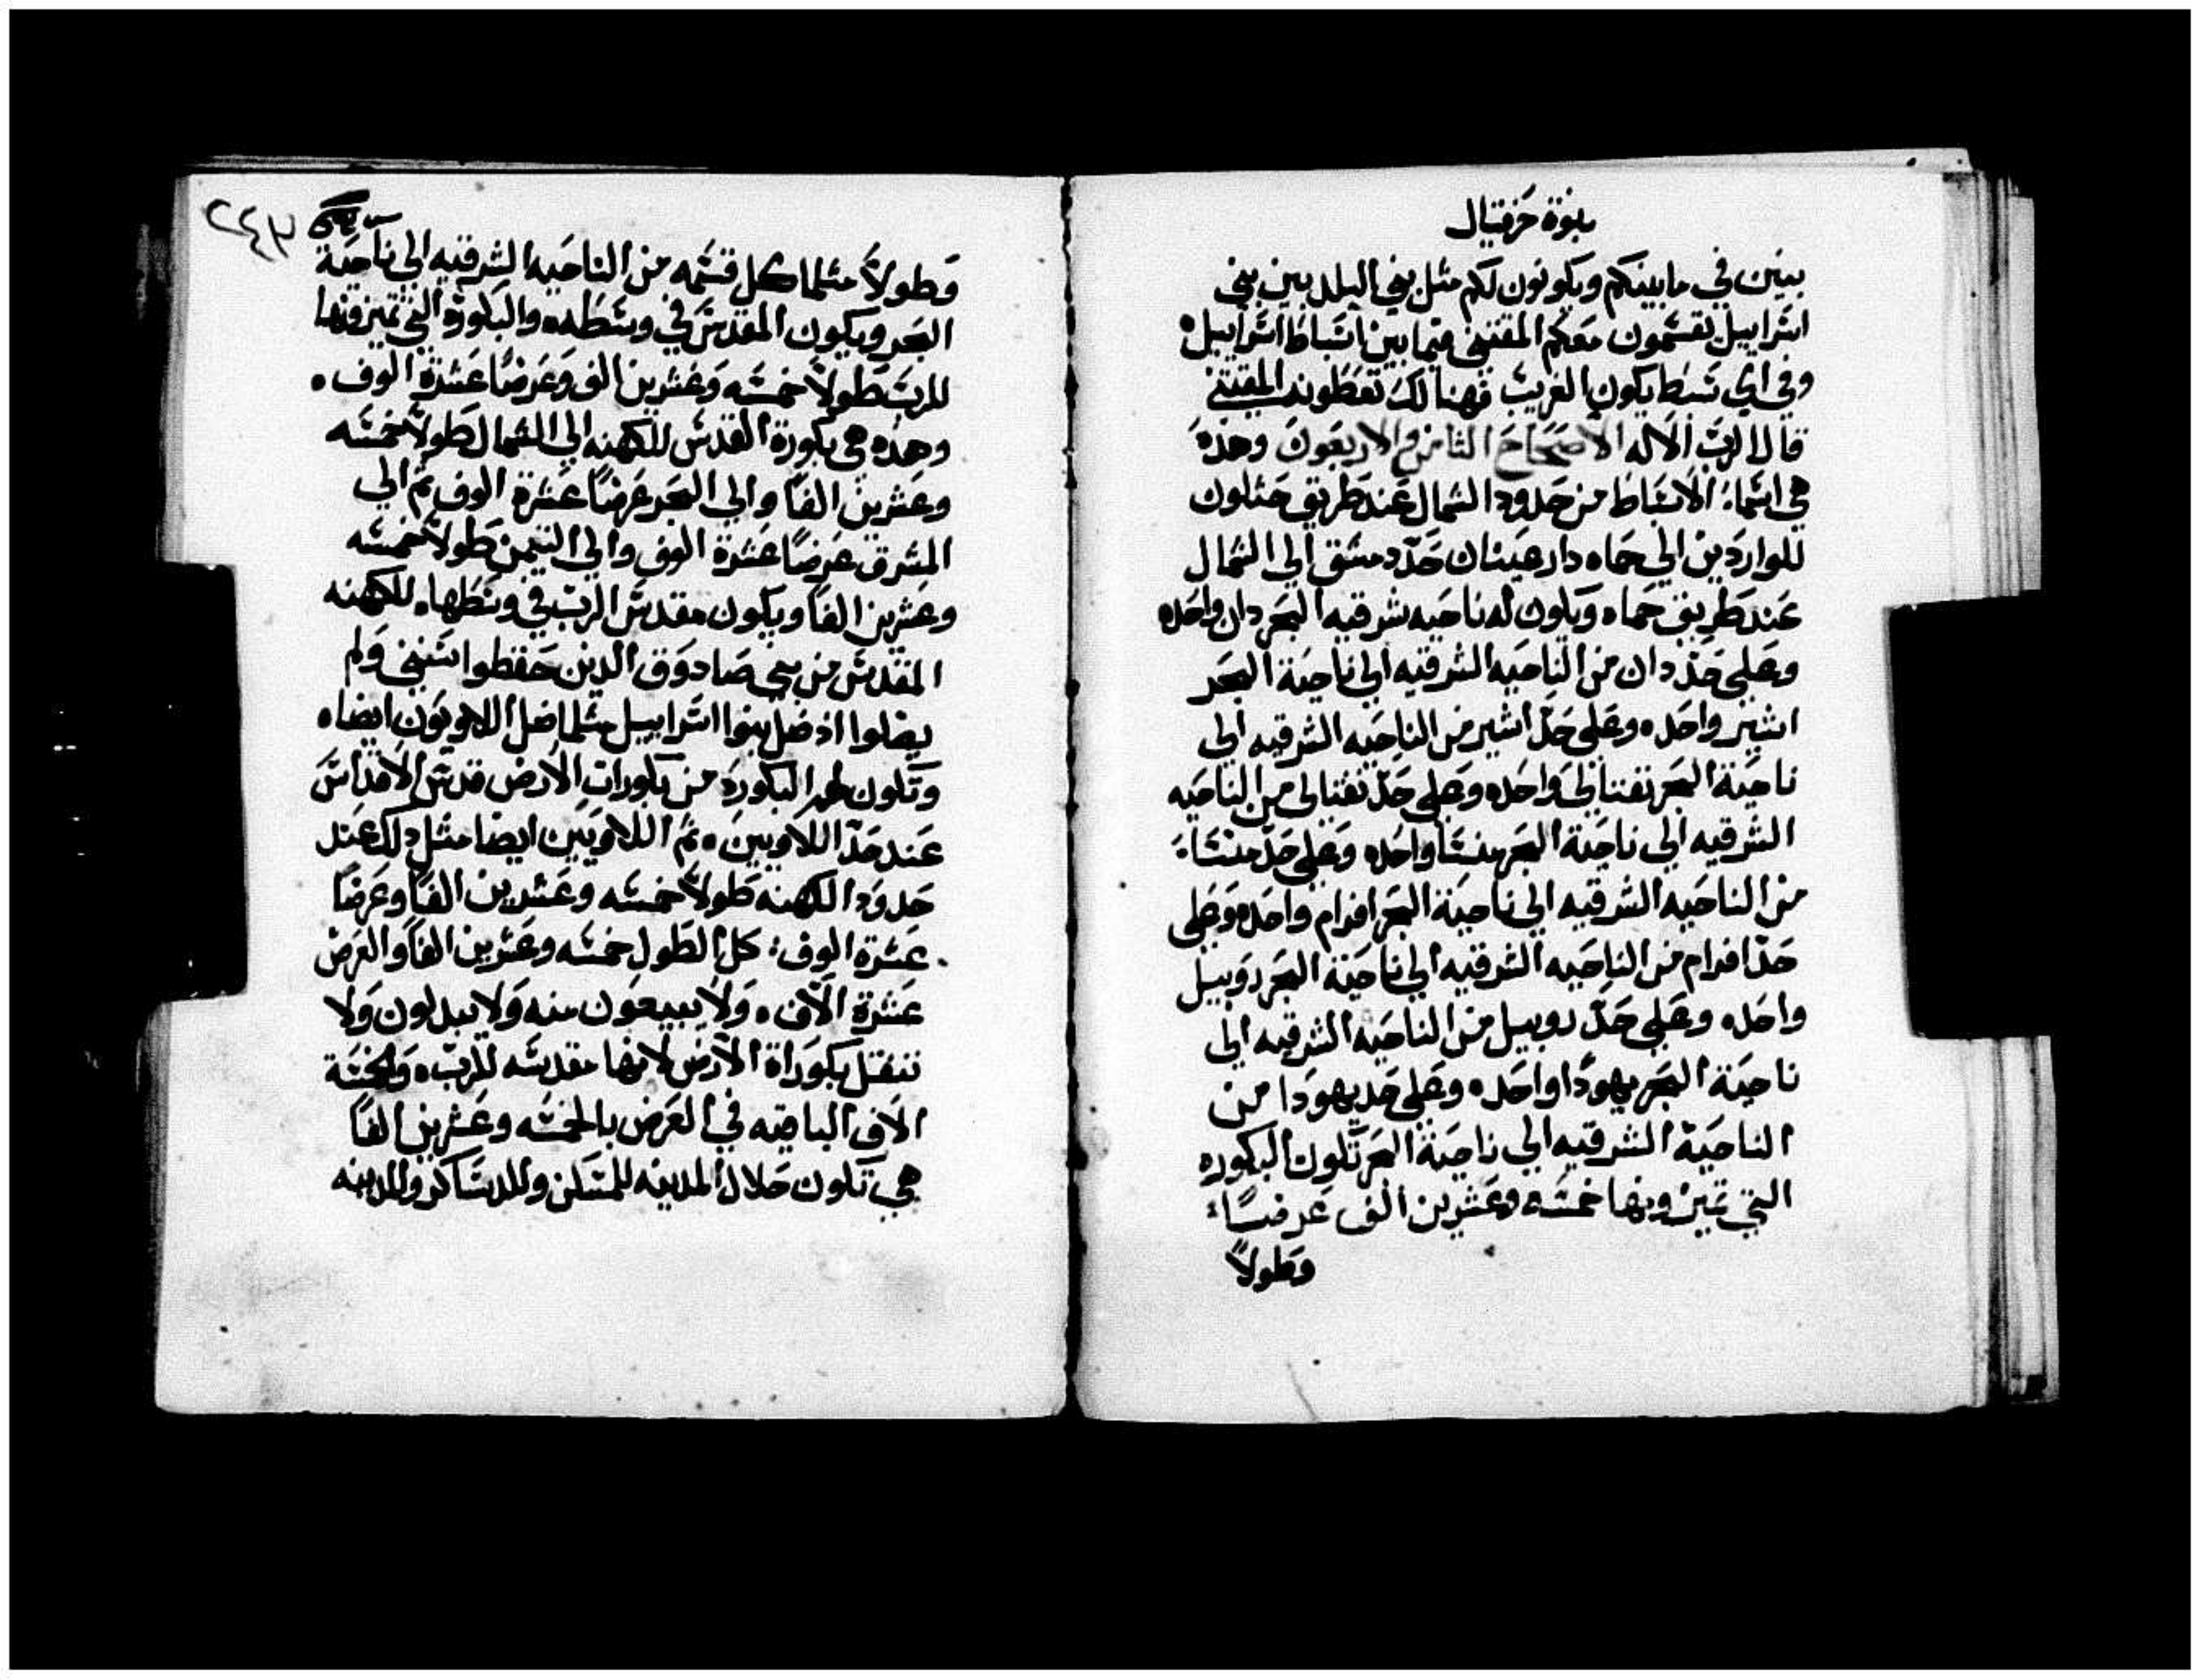 نبوة حزقيال
بينن في مابينكم ويكونون لكم مثل بني البلد بين بني
اسراييل يقسمون معكم المقتني فيما بين اسباط اسراييل
وفي اي سبط يكون الغريب فهنالك تعطونه المقتني
قال الرب الاله الاصحاح الثامن والاربعون وهذه
هي اسماء الاسباط من حدود الشمال عند طريق حثلون
للواردين الي حماه دار عينان حد دمشق الي الشمال
عند طريق حماه ويكون له ناحيه شرقيه البحر دان واحده
وعلي حد دان من الناحيه الشرقيه الي ناحية البحر
اشير واحده وعلي حد اشير من الناحيه الشرقيه الي
ناحية البحر نفتالي واحده وعلي حد نفتالي من الناحيه
الشرقيه الي ناحية البحر منسا واحده وعلي حد منسا
من الناحيه الشرقيه الي ناحية البحر افرام واحده وعلي
حد افرام من الناحيه الشرقيه الي ناحية البحر روبيل
واحده وعلي حد روبيل من الناحيه الشرقيه الي
ناحية البحر يهودا واحده وعلي حد يهودا من
الناحية الشرقيه الي ناحية البحر تكون البكوره
التي تميزونها خمسه وعشرين الف عرضاً
وطولاً
٢٤٧
وطولاً مثلما كل قسمه من الناحيه الشرقيه الي ناحية
البحر ويكون المقدس في وسطه والبكورة التي تميزونها
للرب طولاً خمسه وعشرين الف وعرضاً عشرة الوف
وهذه هي بكورة القدس للكهنه الي الشمال طولاً خمسه
وعشرين الفاً والي البحر عرضاً عشرة الوف ثم الي
المشرق عرضاً عشرة الوف والي التيمن طولاً خمسه
وعشرين الفاً ويكون مقدس الرب في وسطها للكهنه
المقدس من بني صادوق الدين حفظوا سنني ولم
يضلوا اذ ضل بنوا اسراييل مثلما ضل اللاويون ايضاً
وتكون لهم البكورة من بكورات الارض قدس الاقداس
عند حد اللاويين ثم اللاويين ايضا مثل دلك عند
حدود الكهنه طولاً خمسه وعشرين الفاً وعرضاً
عشرة الوف كل الطول خمسه وعشرين الفاً والعرض
عشرة الاف ولا يبيعون منه ولا يبدلون ولا
تنتقل بكوراة الارض لانها مقدسه للرب والخمسة
الاف الباقيه في العرض بالخمسه وعشرين الفاً
هي تكون حلال المدينه للمسكن وللدساكر والمدينه